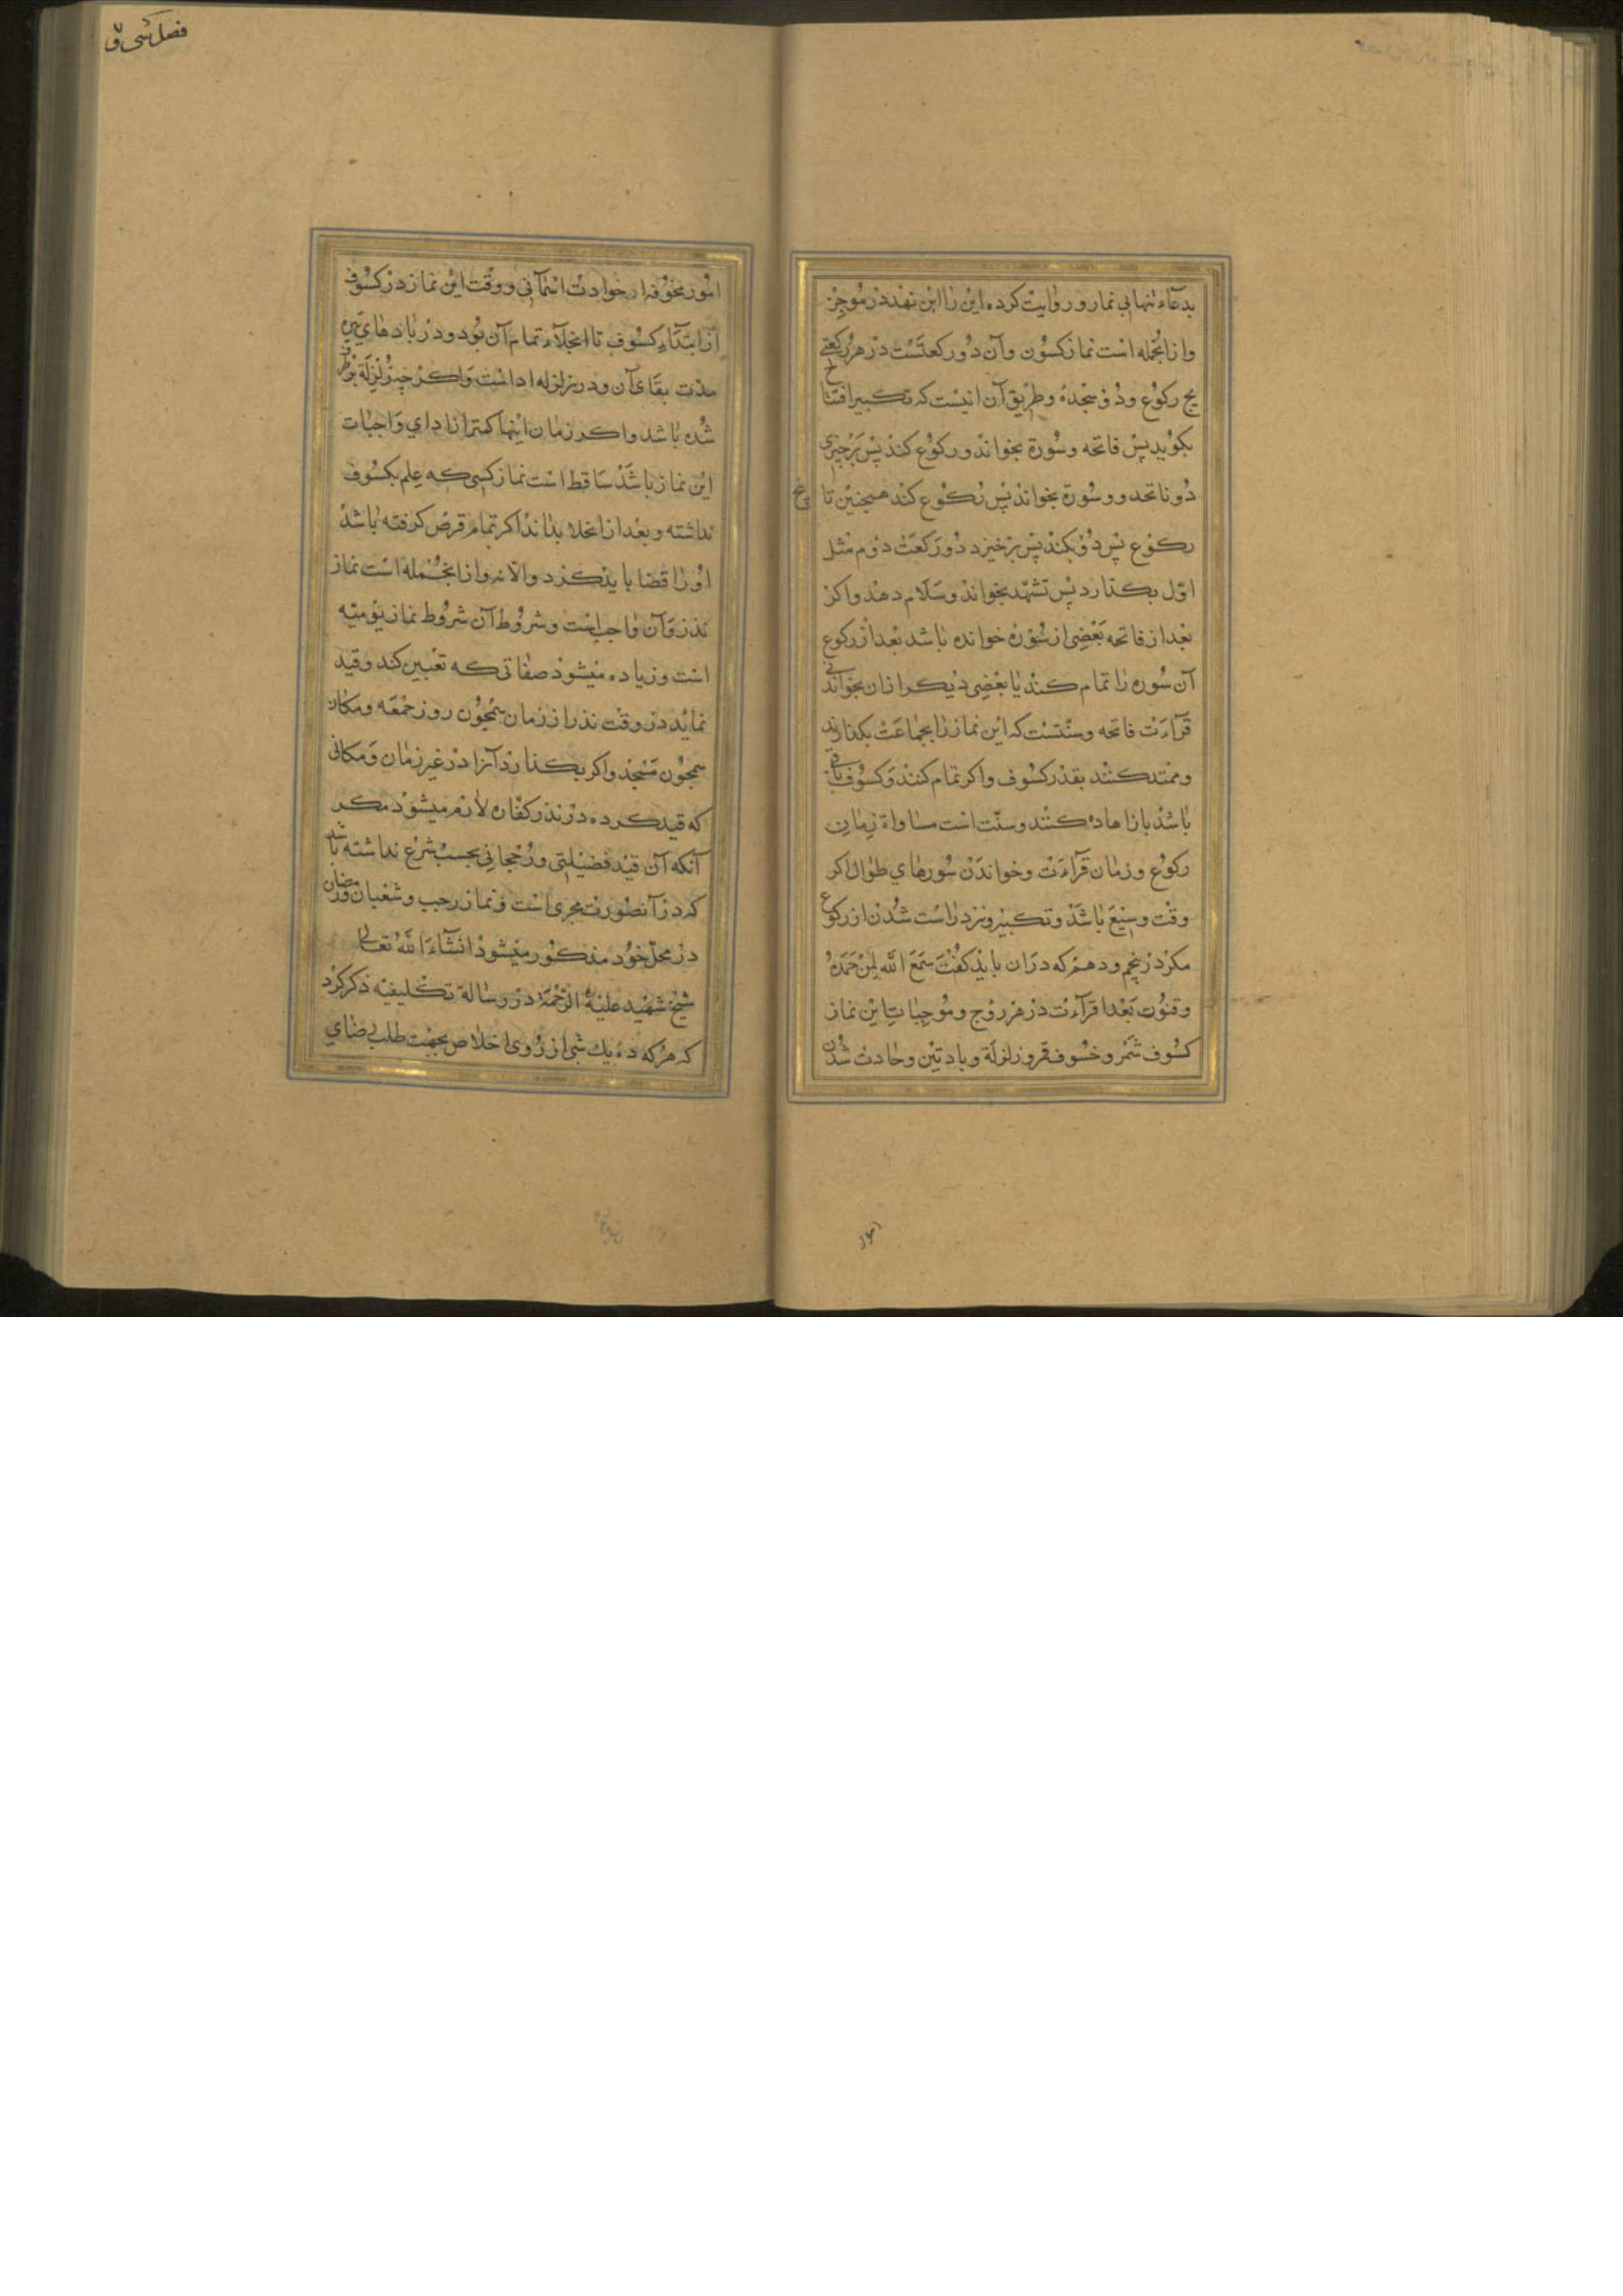 بدعاء تنهائی نماز و روایت کرده این را ابن فهد در موجز
و ازانجمله است نماز کسوف و آن دو رکعتست در هر رکعتی
پنج رکوع و دو سجده و طریق آن اینست که تکبیر افتتاح
بکوید پس فاتحه و سورة بخواند و رکوع کند پس برخیزی
دو فاتحه و سورة بخواند پس رکوع کند همچنین تا پنج
رکوع پس دو بکند پس برخیزد دو رکعت دوم مثل
اول بکذارد پس تشهد بخواند و سلام دهد و اکر
بعد از فاتحه بعضی از سوره خوانده باشد بعد از رکوع
آن سوره را تمام کند یا بعضی دیکر ازان بخواند بی
قرآءت فاتحه و سنتست که این نماز را بجماعت بکذارند
و ممتد کنند بقدر کسوف و اکر تمام کنند و کسوف باقی
باشد باز اعاده کنند و سنت است مساواة زمان
رکوع و زمان قرآءت و خواندن سورهای طوال اکر
وقت وسیع باشد و تکبیر و نزد راست شدن از رکوع
مکر در پنجم و دهم که دران باید کفت سمع الله لمن حمده
و قنوت بعد از قرآءت در هر زوج و موجبات این نماز
کسوف شمس و خسوف قمر و زلزلة و باد تین و حادث شدن
امور
فصل کسی و
امور مخوفه از حوادث اسمآنی و وقت این نماز در کسوف
از ابتدآء کسوف تا انجلآء تمام آن بود و در بادهای تیره
مدت بقای آن و در زلزله اداست و اکرچه زلزلة برطرف
شده باشد و اکر زمان اینها کمتر از ادای واجبات
این نماز باشد ساقط است نماز کسی که علم بکسوف
نداشته و بعد از انجلا بداند اکر تمام قرص کرفته باشد
او را قضا باید کرد و الا نه و ازانجمله است نماز
نذر و آن واجب است و شروط آن شروط نماز یومیه
است و زیاده میشود صفاتی که تعیین کند و قید
نماید در وقت نذر از زمان همچون روز جمعه و مکان
همچون مسجد و اکر بکذارد آنرا در غیر زمان و مکانی
که قید کرده در نذر کفاره لازم میشود مکر
آنکه آن قید فضیلتی و رجحانی بحسب شرع نداشته باشد
که در آنصورت مجری است و نماز رجب و شعبان و رمضان
در محل خود مذکور میشود انشآء الله تعالی
شیخ شهید علیه الرحمة در رسالة تکلیفیه ذکر کرد
که هر که ده یک شی از روی اخلاص بجهت طلب رضای